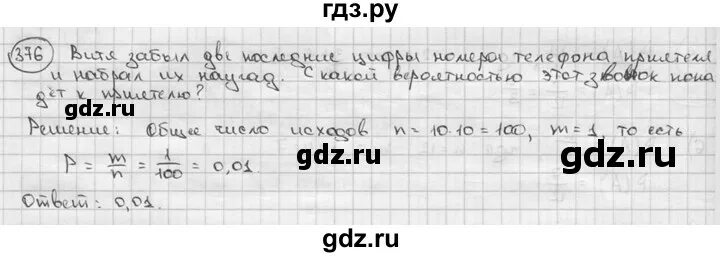 гдз.ру
376 Витя забыл две последние цифры номера телефона приятеля
и набрал их наугад. С какой вероятностью этот звонок попа
дёт к приятелю?
gdz.ru
gdz.ru
Решение: Общее число исходов n = 10·10 = 100, m = 1, то есть
P = m/n = 1/100 = 0,01.
gdz.ru
gdz.ru
Ответ: 0,01.
gdz.ru
gdz.ru